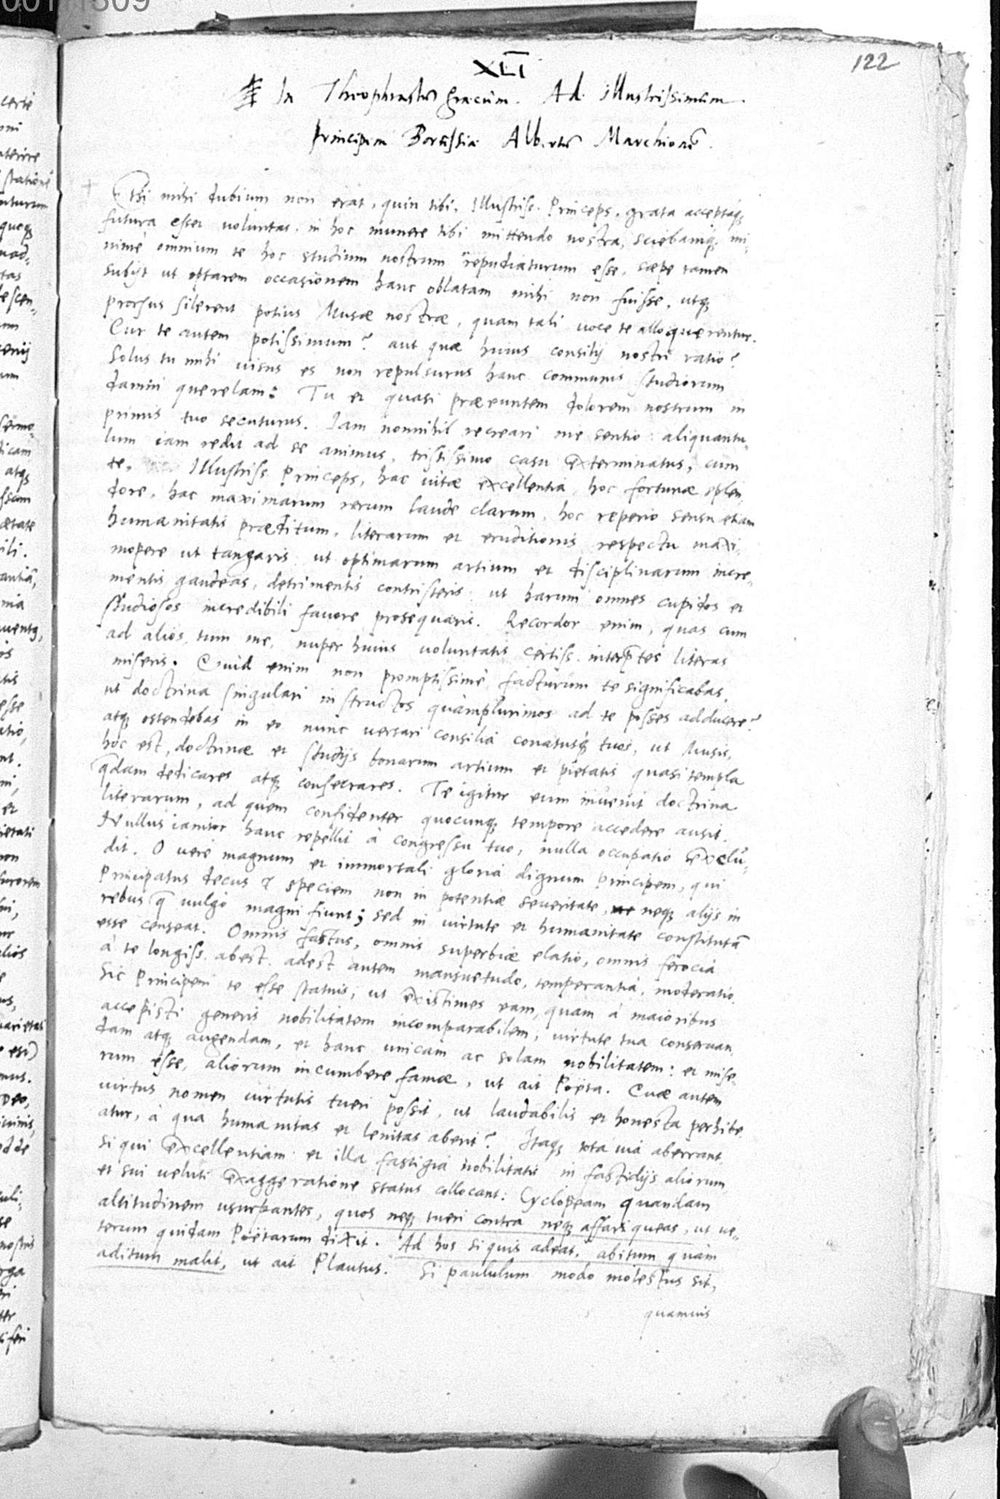 XLI
122
In Theophrastum Graecum. Ad illustrissimum
Principem Borussiae Albertum Marchionem.
Etsi mihi dubium non erat, quin tibi, Illustriss. Princeps, grata acceptaq;
futura esset voluntas, in hoc munere tibi mittendo nostra, sciebamq; mi-
nime omnium te hoc studium nostrum repudiaturum esse, saepe tamen
subijt ut optarem occasionem hanc oblatam mihi non fuisse, utq;
prorsus silerent potius Musae nostrae, quam tali voce te alloquerentur.
Cur te autem potissimum? aut quae huius consilij nostri ratio?
Solus tu mihi visus es non repulsurus hanc communis studiorum
damni querelam: Tu et quasi praeeuntem dolorem nostrum in
primis tuo secuturus. Iam nonnihil recreari me sentio: aliquantu-
lum iam redit ad se animus, tristissimo casu exterminatus, cum
te, Illustriss. Princeps, hac vitae excellentia, hoc fortunae splen
dore, hac maximarum rerum laude clarum, hoc reperio sensu etiam
humanitatis praeditum, literarum et eruditionis respectu maxi-
mopere ut tangaris, ut optimarum artium et disciplinarum incre-
mentis gaudeas, detrimentis contristeris, ut harum omnes cupidos et
studiosos incredibili favore prosequaris. Recordor enim, quas cum
ad alios, tum me, nuper huius voluntatis certiss. interptes literas
miseris. Quid enim non promptissime facturum te significabas,
ut doctrina singulari instructos quamplurimos ad te posses adducere?
atq; ostendebas in eo nunc versari consilia conatusq; tuos, ut Musis,
hoc est, doctrinae et studijs bonarum artium et pietatis quasi templa
qdam dedicares atq; consecrares. Te igitur eum invenit doctrina
literarum, ad quem confidenter quocunq; tempore accedere ausit.
Nullus ianitor hanc repellit à congressu tuo, nulla occupatio exclu-
dit. O vere magnum et immortali gloria dignum principem, qui
Principatus decus & speciem non in potentiae severitate, neq; alijs in
rebus q vulgò magni fiunt; sed in virtute et humanitate constitutam
esse censeat. Omnis fastus, omnis superbiae elatio, omnis ferocia
à te longiss. abest. adest autem mansuetudo, temperantia, moderatio.
Sic Principem te esse statuis, ut existimes eam, quam à maioribus
accepisti generis nobilitatem incomparabilem, virtute tua conservan
dam atq; augendam, et hanc unicam ac solam nobilitatem: et mise
rum esse, aliorum incumbere famae, ut ait Poëta. Quae autem
virtus nomen virtutis tueri possit, ut laudabilis et honesta perhibe
atur, à qua humanitas et lenitas aberit? Itaq; tota via aberrant
si qui excellentiam et illa fastigia nobilitatis in fastidijs aliorum
et sui veluti exaggeratione status collocant: Cyclopeam quandam
altitudinem usurpantes, quos neq; tueri contra neq; affari queas, ut ve-
terum quidam Poëtarum dixit. Ad hos si quis adeat, abitum quam
aditum malit, ut ait Plautus. Si paululum modo molestus sit,
quamvis